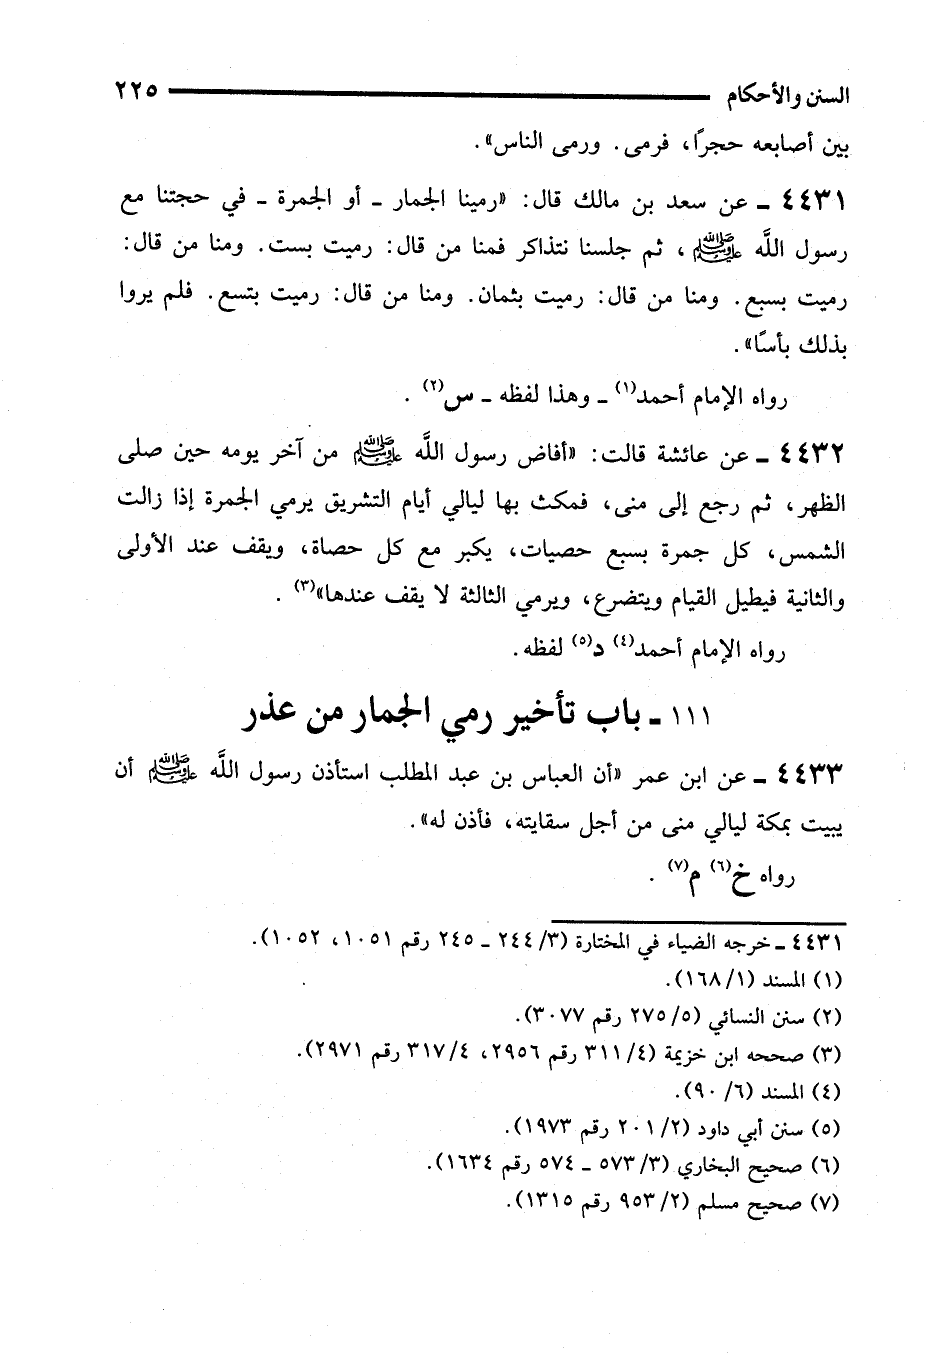 السنن والأحكام ٢٢٥
بين أصابعه حجرًا، فرمى. ورمى الناس».
٤٤٣١ ـ عن سعد بن مالك قال: «رمينا الجمار ـ أو الجمرة ـ في حجتنا مع
رسول اللَّه ﷺ، ثم جلسنا نتذاكر فمنا من قال: رميت بست. ومنا من قال:
رميت بسبع. ومنا من قال: رميت بثمان. ومنا من قال: رميت بتسع. فلم يروا
بذلك بأسًا».
رواه الإمام أحمد(١) ـ وهذا لفظه ـ س(٢).
٤٤٣٢ ـ عن عائشة قالت: «أفاض رسول اللَّه ﷺ من آخر يومه حين صلى
الظهر، ثم رجع إلى منى، فمكث بها ليالي أيام التشريق يرمي الجمرة إذا زالت
الشمس، كل جمرة بسبع حصيات، يكبر مع كل حصاة، ويقف عند الأولى
والثانية فيطيل القيام ويتضرع، ويرمي الثالثة لا يقف عندها»(٣).
رواه الإمام أحمد(٤) د(٥) لفظه.
١١١ ـ باب تأخير رمي الجمار من عذر
٤٤٣٣ ـ عن ابن عمر «أن العباس بن عبد المطلب استأذن رسول اللَّه ﷺ أن
يبيت بمكة ليالي منى من أجل سقايته، فأذن له».
رواه خ(٦) م(٧).
٤٤٣١ ـ خرجه الضياء في المختارة (٣/ ٢٤٤ ـ ٢٤٥ رقم ١٠٥١، ١٠٥٢).
(١) المسند (١/ ١٦٨).
(٢) سنن النسائي (٥/ ٢٧٥ رقم ٣٠٧٧).
(٣) صححه ابن خزيمة (٤/ ٣١١ رقم ٢٩٥٦، ٤/ ٣١٧ رقم ٢٩٧١).
(٤) المسند (٦/ ٩٠).
(٥) سنن أبي داود (٢/ ٢٠١ رقم ١٩٧٣).
(٦) صحيح البخاري (٣/ ٥٧٣ ـ ٥٧٤ رقم ١٦٣٤).
(٧) صحيح مسلم (٢/ ٩٥٣ رقم ١٣١٥).